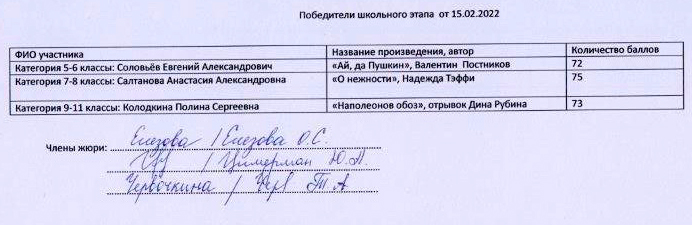 Победители школьного этапа от 15.02.2022
ФИО участника Название произведения, автор Количество баллов
Категория 5-6 классы: Соловьёв Евгений Александрович «Ай, да Пушкин», Валентин Постников 72
Категория 7-8 классы: Салтанова Анастасия Александровна «О нежности», Надежда Тэффи 75
Категория 9-11 классы: Колодкина Полина Сергеевна «Наполеонов обоз», отрывок Дина Рубина 73
Члены жюри: Елезова / Елезова О.С.
/ Цимерман Ю.П.
Червочкина / Черв Т.А